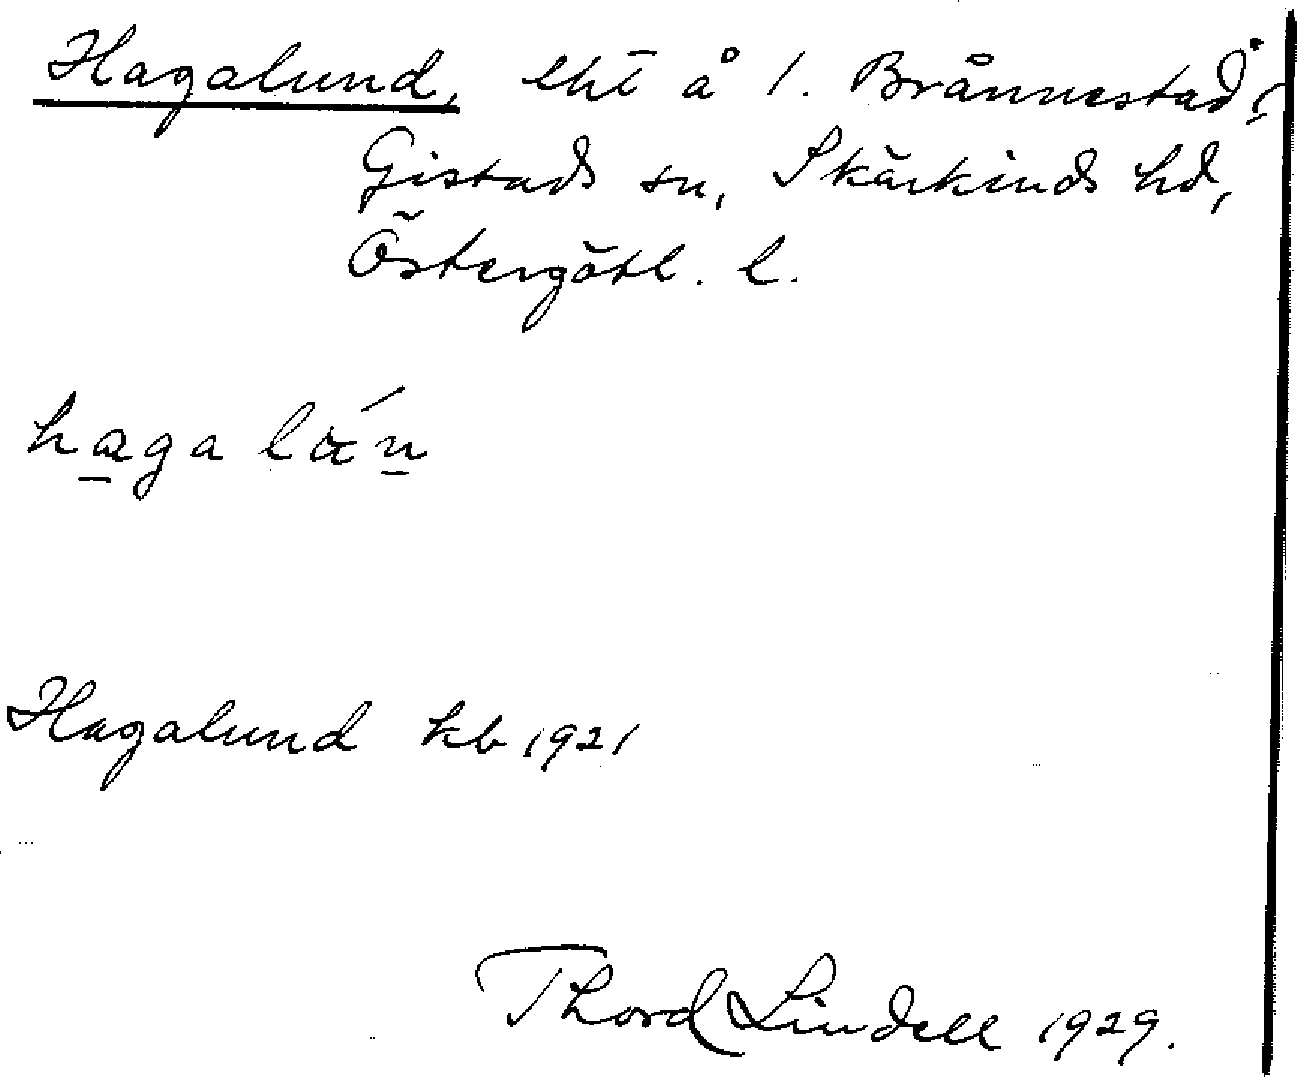 Hagalund, lht å 1. Brånnestad i
Gistads sn, Skärkinds hd,
Östergötl. l.
haga lán
Hagalund kb 1921
Thord Lindell 1929.